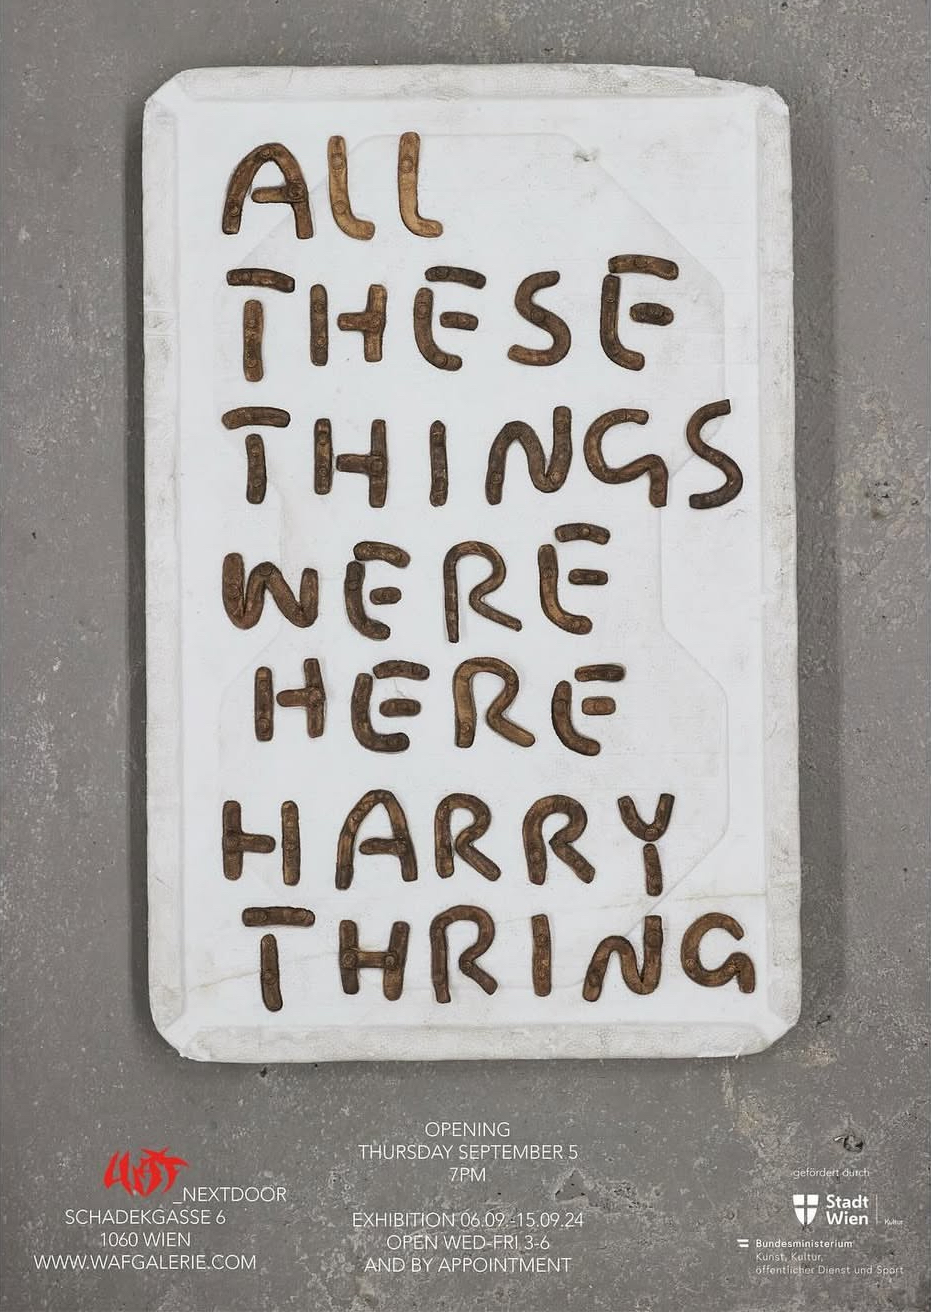 ALL
THESE
THINGS
WERE
HERE
HARRY
THRING
OPENING
THURSDAY SEPTEMBER 5
7PM
EXHIBITION 06.09.-15.09.24
OPEN WED-FRI 3-6
AND BY APPOINTMENT
WAF
_NEXTDOOR
SCHADEKGASSE 6
1060 WIEN
WWW.WAFGALERIE.COM
gefördert durch
Stadt
Wien Kultur
Bundesministerium
Kunst, Kultur,
öffentlicher Dienst und Sport